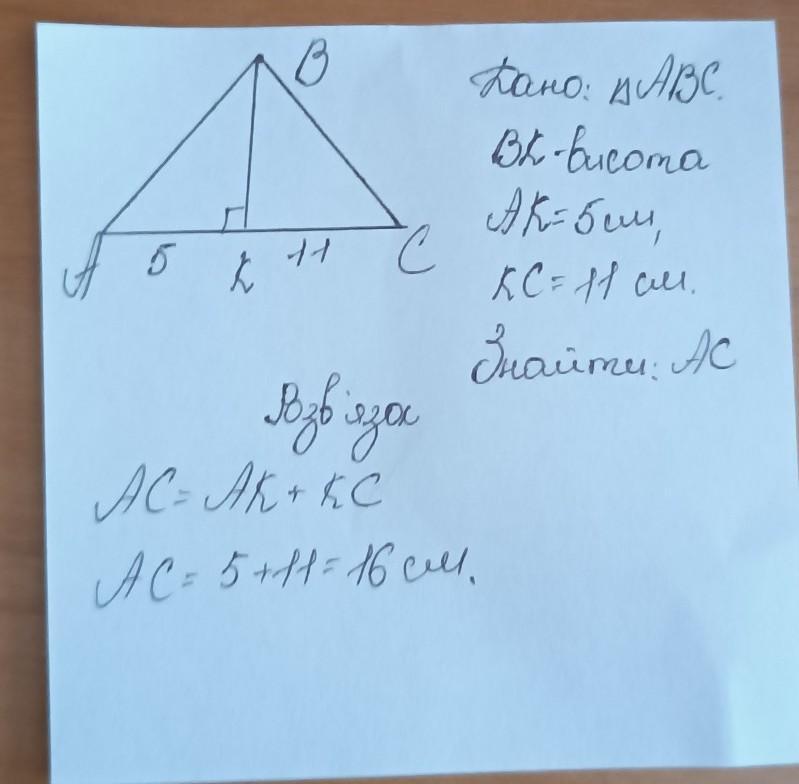 B
A 5 K 11 C
Дано: △ABC.
BK - висота
AK = 5 см,
KC = 11 см.
Знайти: AC
AC = AK + KC
AC = 5 + 11 = 16 см.